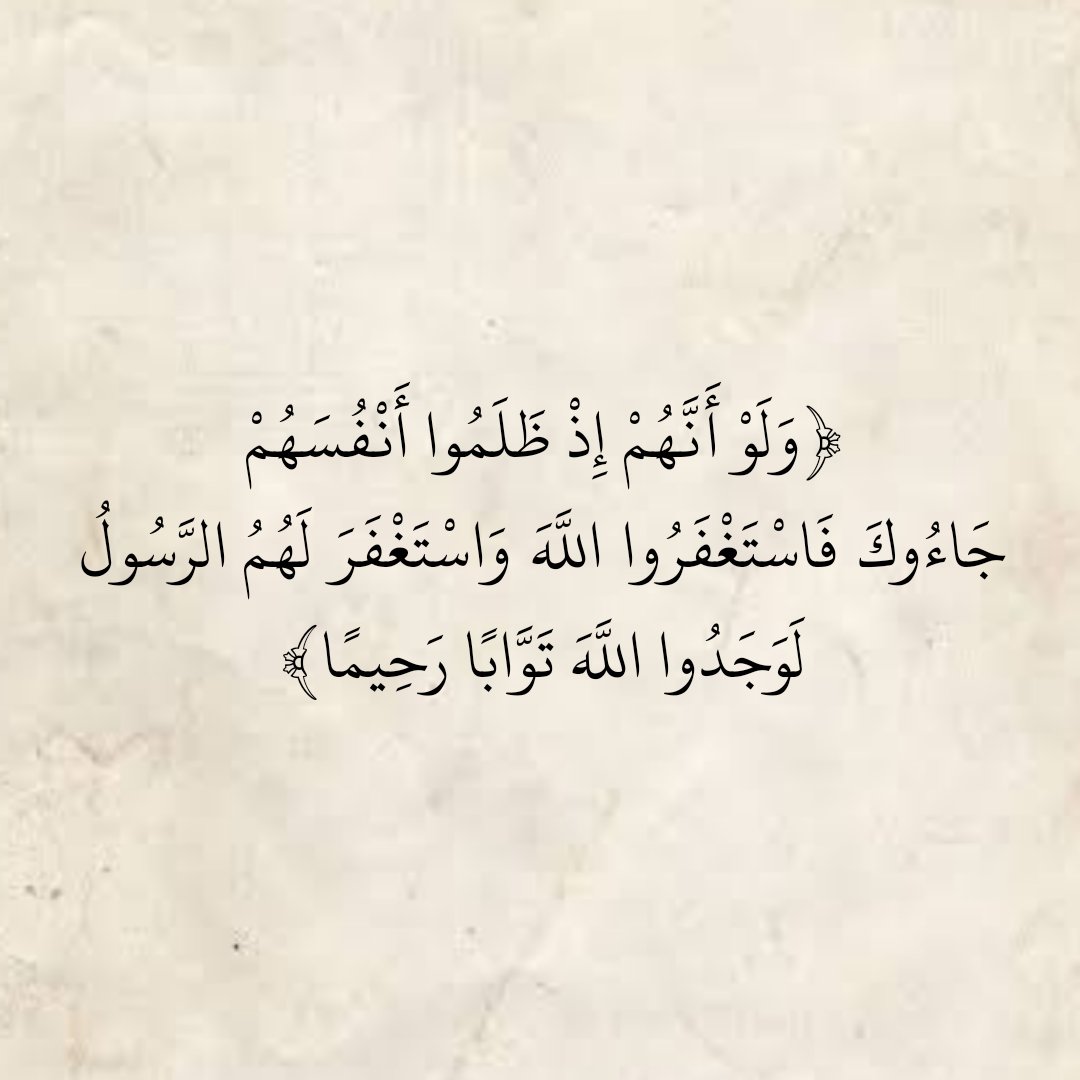 ﴿وَلَوْ أَنَّهُمْ إِذْ ظَلَمُوا أَنْفُسَهُمْ
جَاءُوكَ فَاسْتَغْفَرُوا اللَّهَ وَاسْتَغْفَرَ لَهُمُ الرَّسُولُ
لَوَجَدُوا اللَّهَ تَوَّابًا رَحِيمًا﴾